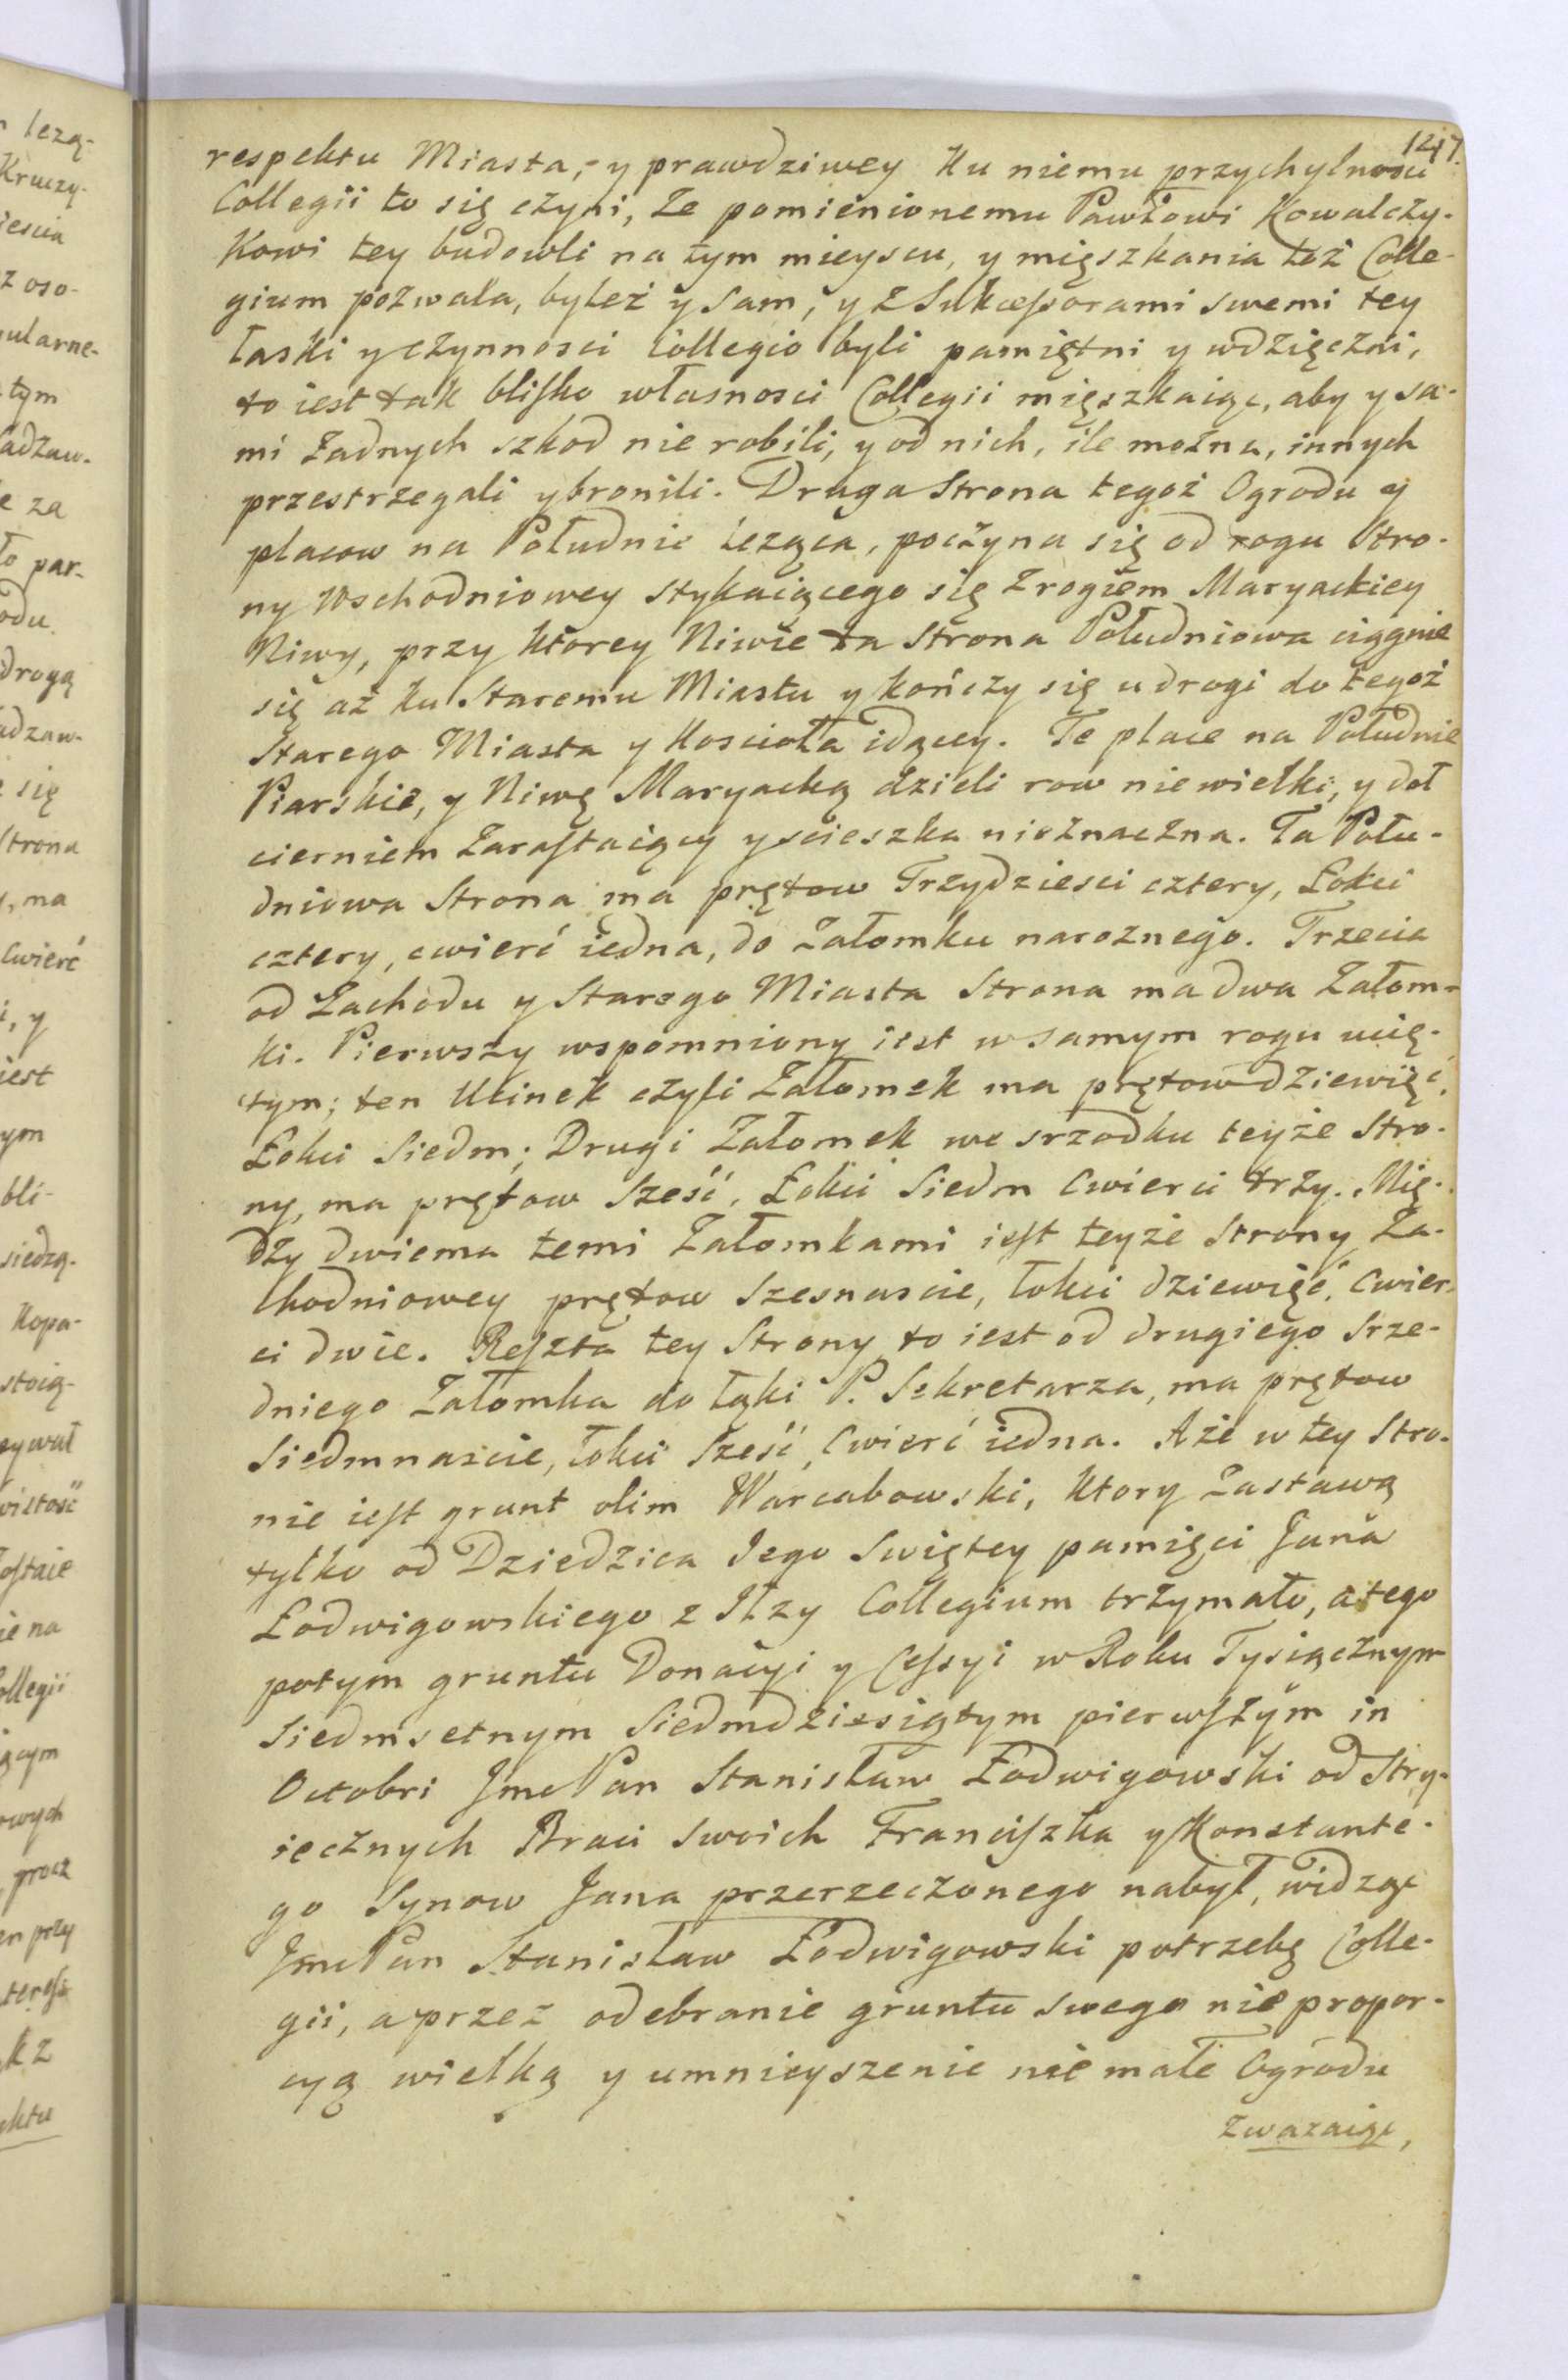 147.
respektu Miasta, y prawdziwey Ku niemu przychylnosci
Collegii to się czyni, że pomienionemu Pawłowi Kowalczy-
kowi tey budowli na tym mieyscu, y mięszkania też Colle-
gium pozwala, byleż y sam, y z Sukcessorami swemi tey
łaski y czynnosci Collegio byli pamiętni y wdzięczni,
to iest tak blisko własnosci Collegii mięszkaiąc, aby y sa-
mi żadnych szkod nie robili, y od nich, ile można, innych
przestrzegali y bronili. Druga Strona tegoż Ogrodu y
placow na Południe leżąca, poczyna się od rogu Stro-
ny Wschodniowey stykaiącego się z rogiem Maryackiey
Niwy, przy Ktorey Niwie ta Strona Południowa ciągnie
się aż ku Staremu Miastu y kończy się u drogi do tegoż
Starego Miasta y Koscioła idącey. Te place na Południe
Piarskie, y Niwę Maryacką dzieli row niewielki, y doł
cierniem zarastaiący y scieszka nieznaczna. Ta Połu-
dniowa Strona ma prętow Trzydziesci cztery, Łokci
cztery, cwierć iedna, do Załomku narożnego. Trzecia
od Zachodu y Starego Miasta Strona ma dwa Załom-
ki. Pierwszy wspomniony iest w samym rogu ucię-
tym; ten Ucinek czyli Załomek ma prętow dziewięć,
Łokci Siedm; Drugi Załomek we srzodku teyże Stro-
ny, ma prętow Sześć, Łokci Siedm Cwierci trzy. Mię-
dzy dwiema temi Załomkami iest teyże Strony Za-
chodniowey prętow Szesnascie, łokci dziewięć, Cwier-
ci dwie. Reszta tey Strony to iest od drugiego Srze-
dniego Załomka do łąki P. Sekretarza, ma prętow
Siedmnascie, łokci Sześć, Cwierć iedna. A że w tey Stro-
nie iest grunt olim Warcabowski, Ktory Zastawą
tylko od Dziedzica Iego Swiętey pamięci Jana
Łodwigowskiego z Iłzy Collegium trzymało, a tego
potym gruntu Donacyi y Cessyi w Roku Tysiącznym
Siedmsetnym Siedmdziesiątym pierwszym in
Octobri Jmc Pan Stanisław Łodwigowski od Stry-
iecznych Braci Swoich Franciszka y Konstante-
go Synow Jana przerzeczonego nabył, widząc
Jmc Pan Stanisław Łodwigowski potrzebę Colle-
gii, a przez odebranie gruntu swego nie propor-
cyą wielką y umnieyszenie nie małe Ogrodu
zwazaiąc,